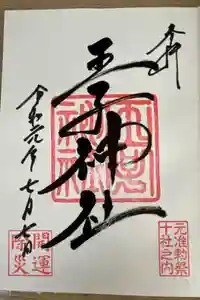 奉拝
王子神社
王子神社
令和元年七月七日
元准勅祭
十社之内
開運
除災